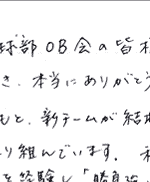 球部OB会の皆様
き、本当にありがとう
もと、新チームが結成
り組んでいます。
を経験し「勝負強